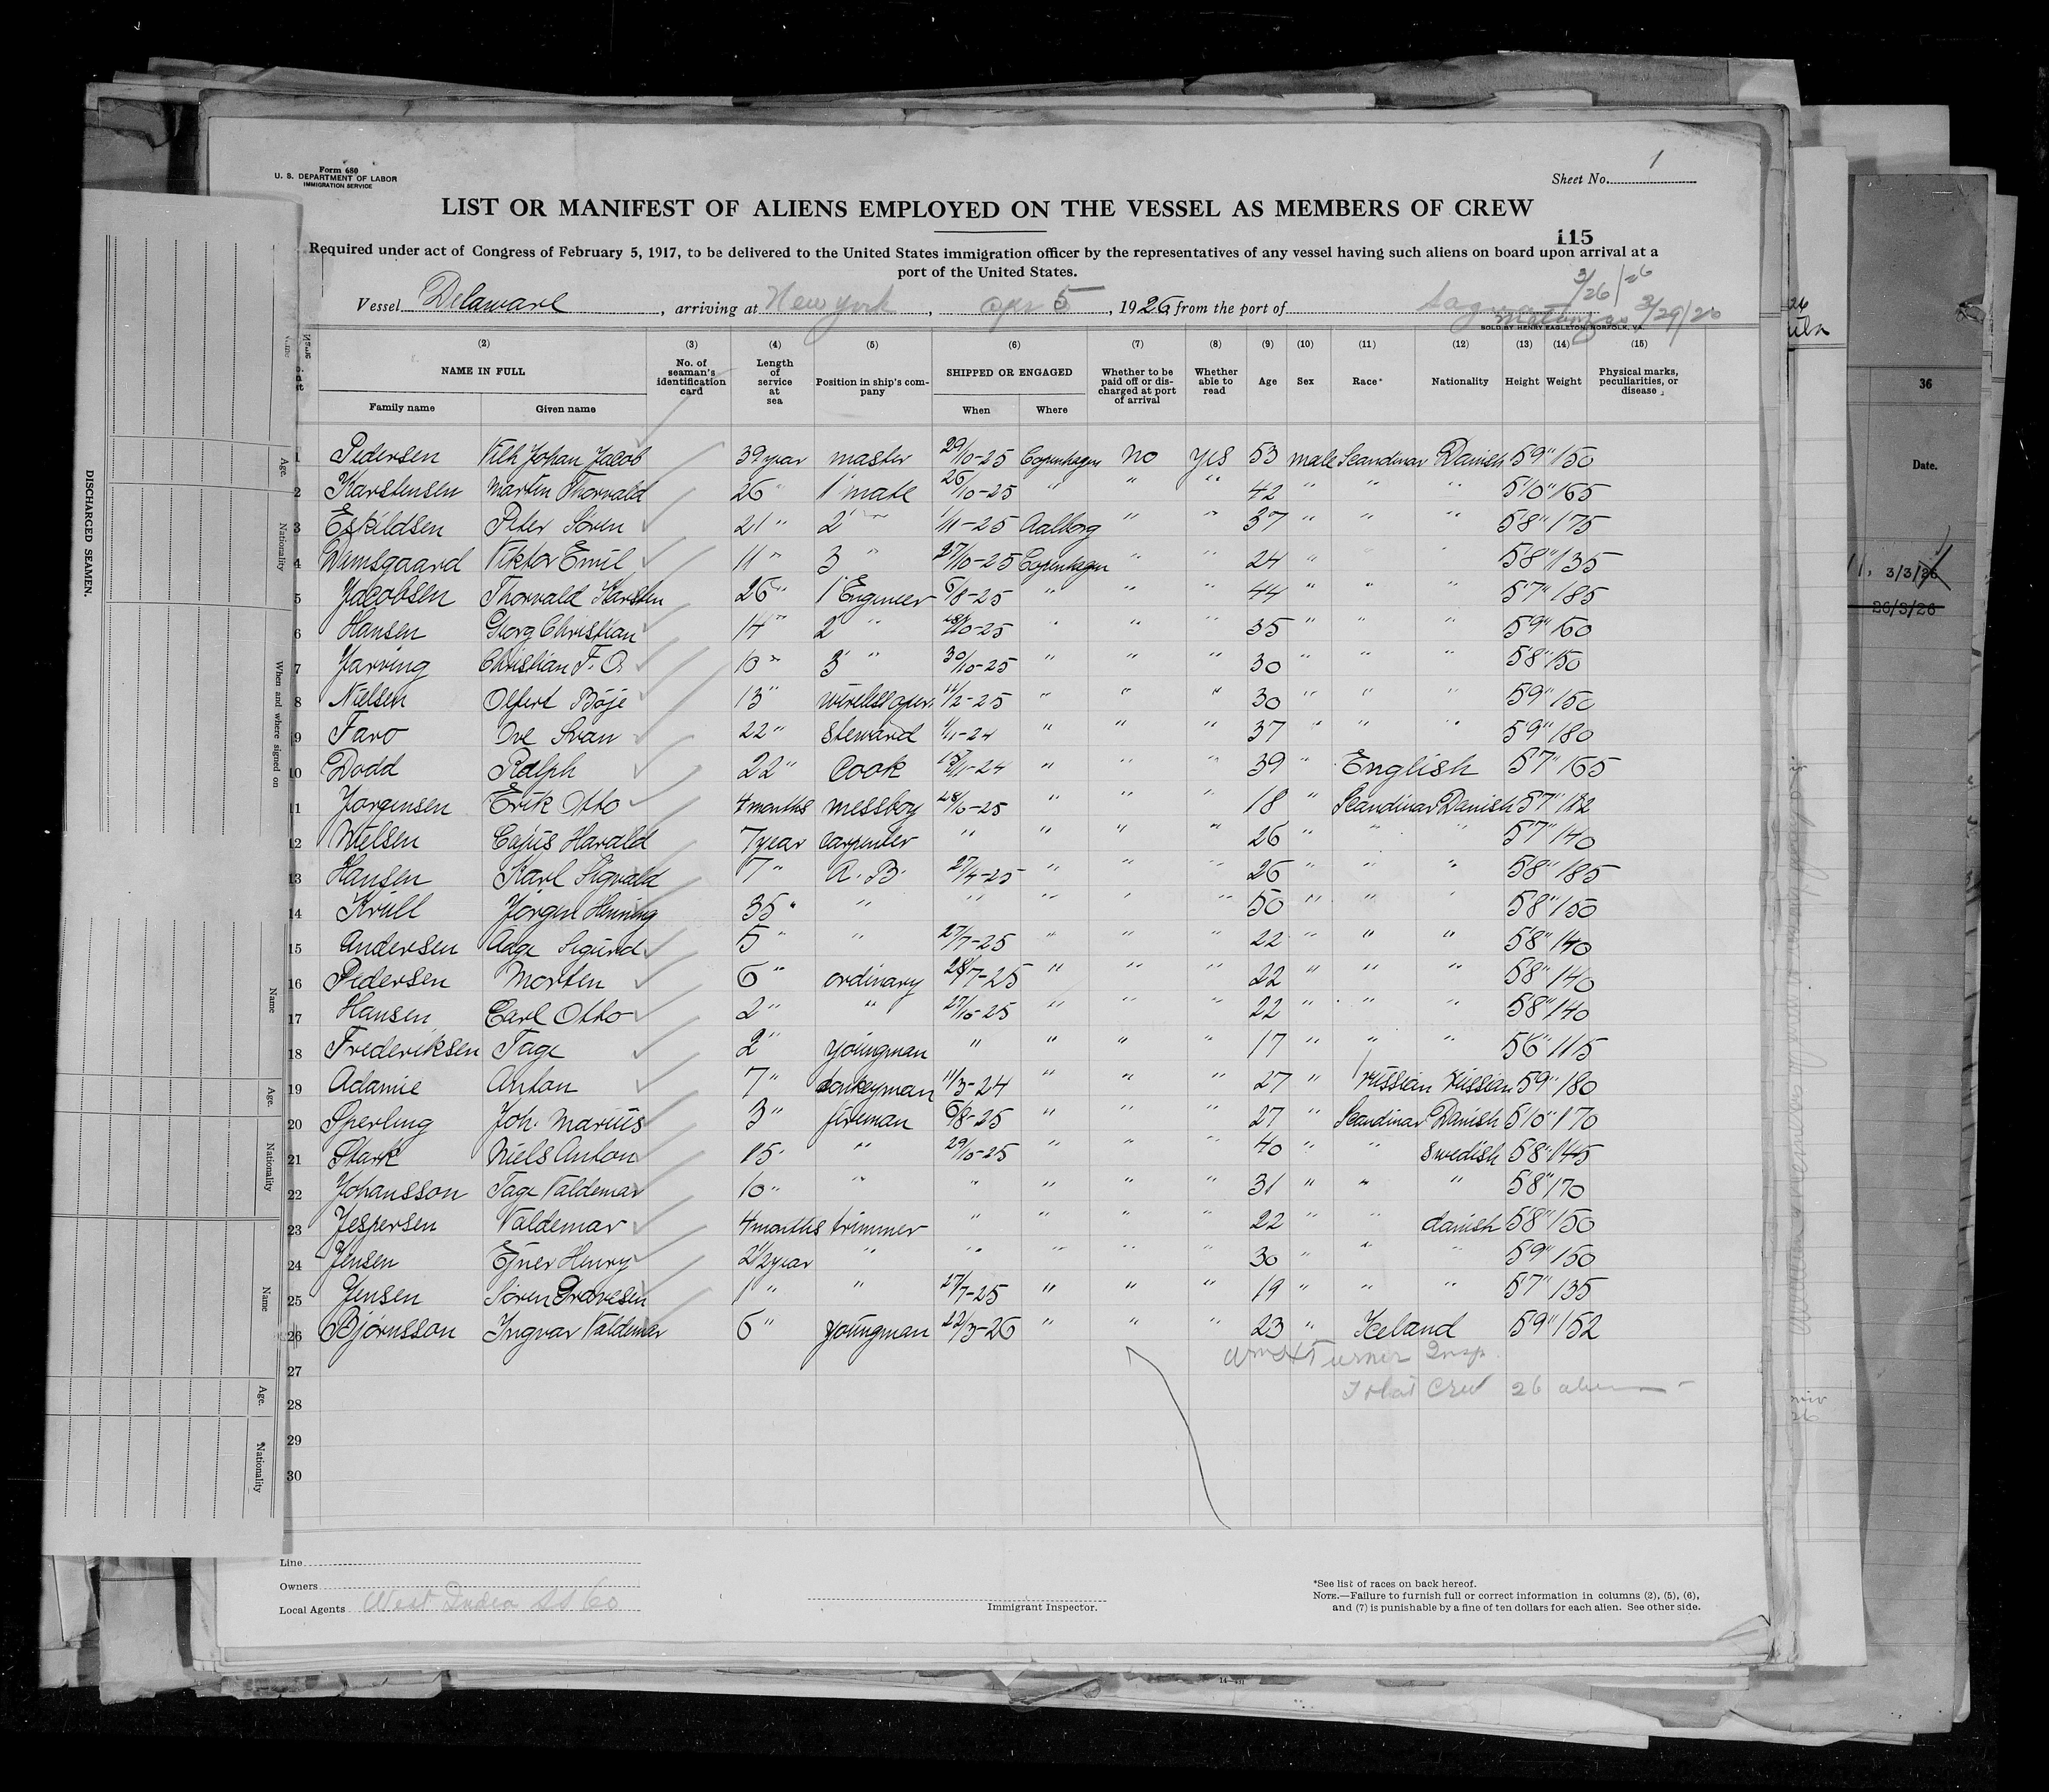 Form 680
U. S. DEPARTMENT OF LABOR
IMMIGRATION SERVICE
Sheet No. 1
LIST OR MANIFEST OF ALIENS EMPLOYED ON THE VESSEL AS MEMBERS OF CREW
115
Required under act of Congress of February 5, 1917, to be delivered to the United States immigration officer by the representatives of any vessel having such aliens on board upon arrival at a
port of the United States.
3/26/26
Vessel Delaware, arriving at New York, Apr 5, 1926, from the port of Sagua
Matanzas 3/29/26
SOLD BY HENRY EAGLETON, NORFOLK, VA.
(2) (3) (4) (5) (6) (7) (8) (9) (10) (11) (12) (13) (14) (15)
NAME IN FULL No. of seaman's identification card Length of service at sea Position in ship's company SHIPPED OR ENGAGED Whether to be paid off or discharged at port of arrival Whether able to read Age Sex Race* Nationality Height Weight Physical marks, peculiarities, or disease
Family name Given name When Where
1 Pedersen Vilh Johan Jacob 39 year master 29/10-25 Copenhagen No yes 53 male Scandinav Danish 5'9" 150
2 Karstensen Marten Thorvald 26 " 1' mate 26/10-25 " " " 42 " " " 5'10" 165
3 Eskildsen Peter Sören 21 " 2' " 1/11-25 Aalborg " " 37 " " " 5'8" 175
4 Viktor Emil 11 " 3 " 27/10-25 Copenhagen " " 24 " " " 5'8" 135
5 Jacobsen Thorvald Karsten 26 " 1' Engineer 5/8-25 " " " 44 " " " 5'7" 185
6 Hansen Georg Christian 14 " 2' " /10-25 " " " 35 " " " 5'9" 160
7 Jarving Christian F. O. 10 " 3' " 30/10-25 " " " 30 " " " 5'8" 150
8 Nielsen Olfert Böje 13 " wireless oper. 11/2-25 " " " 30 " " " 5'9" 150
9 Faro Ove Svan 22 " Steward 1/11-24 " " " 37 " " " 5'9" 180
10 Dodd Ralph 22 " Cook /11-24 " " " 39 " English 5'7" 165
11 Jorgensen Erik Otto 4 months messboy 28/10-25 " " " 18 " Scandinav Danish 5'7" 112
12 Nielsen Cajus Harald 7 year carpenter " " " " 26 " " " 5'7" 140
13 Hansen Karl Sigvald 7 " A. B. 27/4-25 " " " 26 " " " 5'8" 185
14 Krüll Jörgen Henning 35 " " " " " " 50 " " " 5'8" 150
15 Andersen Aage Sigurd 5 " " 27/7-25 " " " 22 " " " 5'8" 140
16 Pedersen Morten 6 " ordinary 28/7-25 " " " 22 " " " 5'8" 140
17 Hansen Carl Otto 2 " " 27/10-25 " " " 22 " " " 5'8" 140
18 Frederiksen Tage 2 " youngman " " " " 17 " " " 5'6" 115
19 Adamie Anton 7 " donkeyman 11/3-24 " " " 27 " Russian Russian 5'9" 180
20 Sperling Joh. Marius 3 " fireman 5/8-25 " " " 27 " Scandinav Danish 5'10" 170
21 Stark Niels Anton 15 " " 29/10-25 " " " 40 " " Swedish 5'8" 145
22 Johansson Tage Valdemar 10 " " " " " " 31 " " " 5'8" 170
23 Jespersen Valdemar 4 months trimmer " " " " 22 " " danish 5'8" 150
24 Jensen Ejner Henry 2 1/2 year " " " " " 30 " " " 5'9" 150
25 Jensen Sören Gravesen 1 " " 27/7-25 " " " 19 " " " 5'7" 135
26 Björnsson Ingvar Valdemar 6 " youngman 22/3-26 " " " 23 " Iceland 5'9" 152
27 Turner Insp.
28 Total Crew 26 aliens
29
30
Line
Owners
Local Agents West India SS Co
Immigrant Inspector.
*See list of races on back hereof.
NOTE.—Failure to furnish full or correct information in columns (2), (5), (6),
and (7) is punishable by a fine of ten dollars for each alien. See other side.
DISCHARGED SEAMEN.
Age.
Nationality
When and where signed on
Name
Age.
Nationality
Name
Age.
Nationality
36
Date.
3/3/26
26/3/26